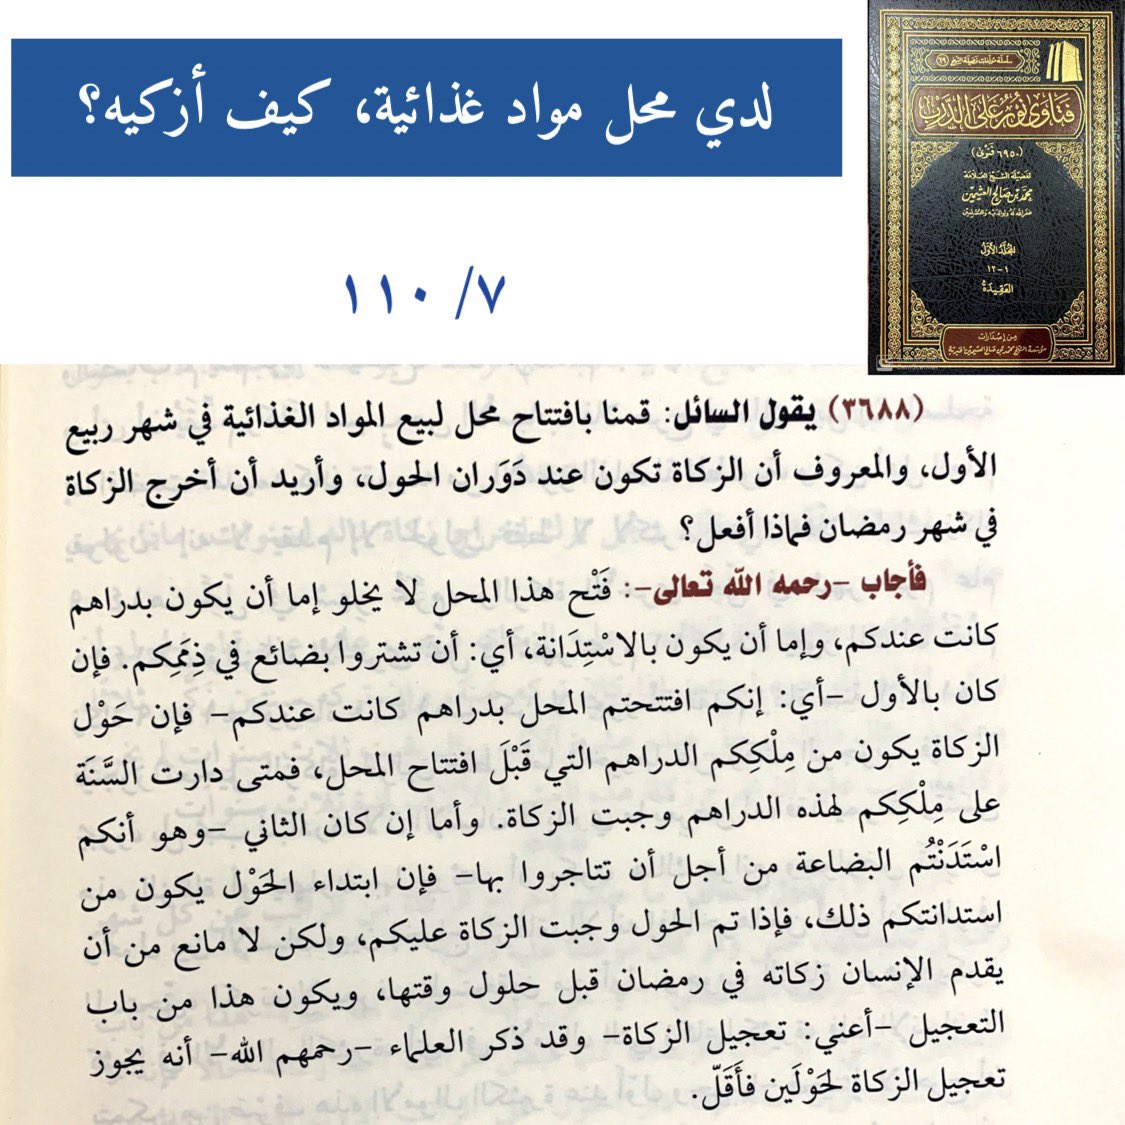 لدي محل مواد غذائية، كيف أزكيه؟
٧/ ١١٠
سلسلة مؤلفات فضيلة الشيخ (٦٩)
فتاوى نور على الدرب
(٦٩٥٠ فتوى)
لفضيلة الشيخ العلامة
محمد بن صالح العثيمين
غفر الله له ولوالديه وللمسلمين
المجلد الأول
١-١٢
العقيدة
من إصدارات
مؤسسة الشيخ محمد بن صالح العثيمين الخيرية
(٣٦٨٨) يقول السائل: قمنا بافتتاح محل لبيع المواد الغذائية في شهر ربيع
الأول، والمعروف أن الزكاة تكون عند دَوَران الحول، وأريد أن أخرج الزكاة
في شهر رمضان فماذا أفعل؟
فأجاب –رحمه الله تعالى–: فَتْح هذا المحل لا يخلو إما أن يكون بدراهم
كانت عندكم، وإما أن يكون بالاسْتِدَانة، أي: أن تشتروا بضائع في ذِمَمِكم. فإن
كان بالأول –أي: إنكم افتتحتم المحل بدراهم كانت عندكم– فإن حَوْل
الزكاة يكون من مِلْكِكم الدراهم التي قَبْلَ افتتاح المحل، فمتى دارت السَّنَة
على مِلْكِكم لهذه الدراهم وجبت الزكاة. وأما إن كان الثاني –وهو أنكم
اسْتَدَنْتُم البضاعة من أجل أن تتاجروا بها– فإن ابتداء الحَوْل يكون من
استدانتكم ذلك، فإذا تم الحول وجبت الزكاة عليكم، ولكن لا مانع من أن
يقدم الإنسان زكاته في رمضان قبل حلول وقتها، ويكون هذا من باب
التعجيل –أعني: تعجيل الزكاة– وقد ذكر العلماء –رحمهم الله– أنه يجوز
تعجيل الزكاة لحَوْلَين فأَقَلّ.